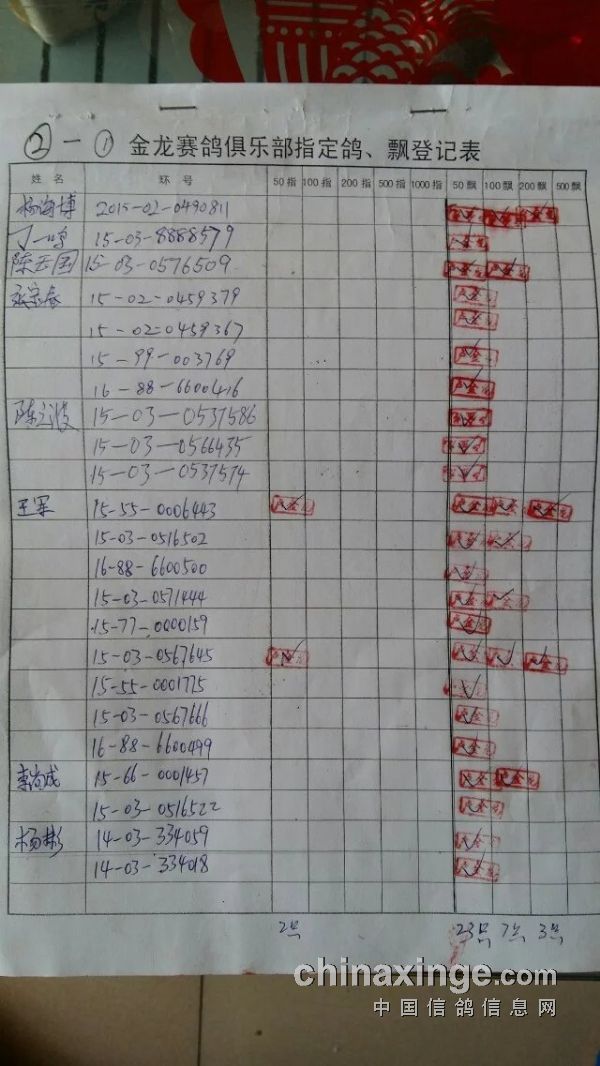 ② 一 ① 金龙赛鸽俱乐部指定鸽、飘登记表
姓名 环号 50指 100指 200指 500指 1000指 50飘 100飘 200飘 500飘
杨海博 2015-02-0490811
丁一鸣 15-03-8888579
陈玉国 15-03-0576509
张宗春 15-02-0459379
15-02-0459367
15-99-003769
16-88-6600416
陈立波 15-03-0537586
15-03-0566435
15-03-0537574
王军 15-55-0006443
15-03-0516502
16-88-6600500
15-03-0571444
15-77-0000159
15-03-0567645
15-55-0001775
15-03-0567666
16-88-6600499
李尚成 15-66-0001457
15-03-0516522
杨彬 14-03-334059
14-03-334018
2只 23只 7只 3只
chinaxinge.com
中国信鸽信息网